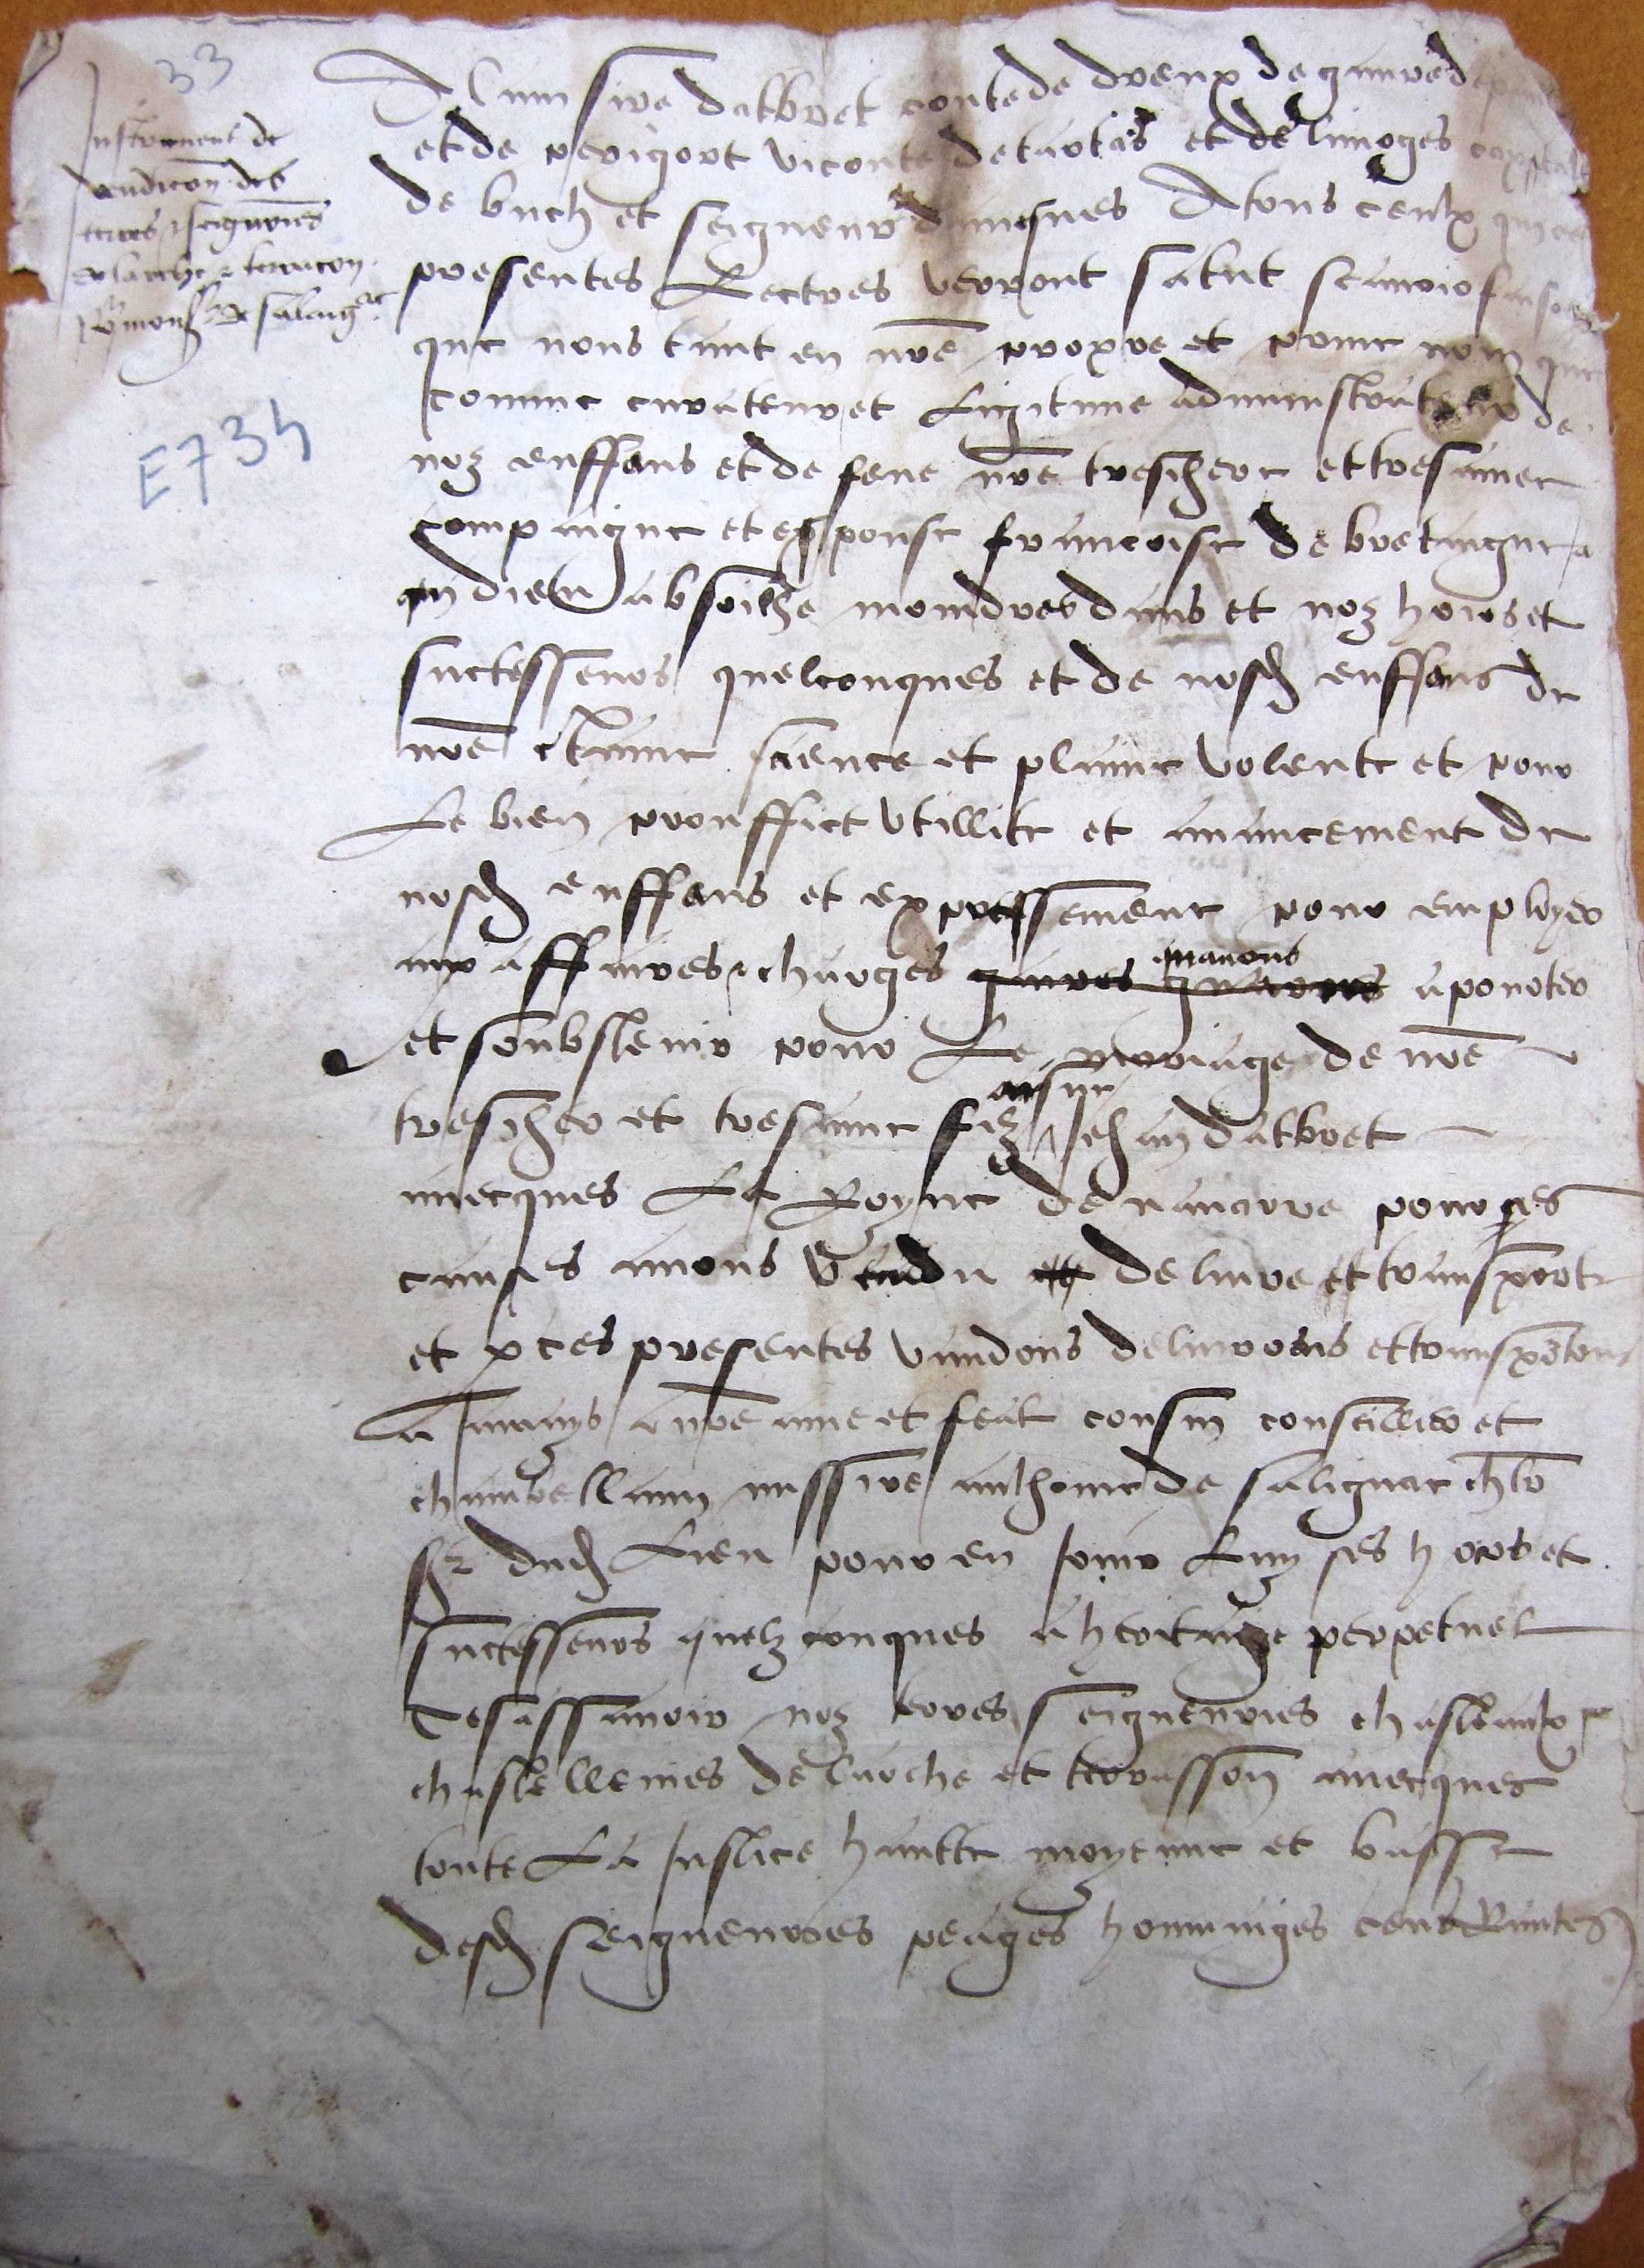 33
Instrument de
vendicon des
terres & seigneuries
de larche & terracon
E 734
Alain sire dalbret conte de dreux de gaure de
et de perigort viconte de tartas et de limoges captal
de buch et seigneur dauesnes A tous ceulx qui ces
presentes Lectres verront salut scauoir faisons
que nous tant en nre propre et priue nom que
comme curateur et ligitime administrateur de
noz enffans et de feue nre treschere et tresamee
compaigne et espouse francoise de bretaigne
qui dieu absoilhe moindres dans et noz hoirs et
successeurs quelconques et de nosd enffans de
nre certaine science et plaine volente et pour
Le bien prouffict vtillite et auancement de
nosd enffans et expressement pour employer
aux affaires & charges quauons a porter
et soubstenir pour Le mariage de nre
trescher et tresame filz aisne Jehan dalbret
auecques La Royne de nauarre pour ces
causes auons vendu deliure et transporte
et p ces presentes vendons deliurons et transportons
a Jamays a nre ame et feal cousin conseillier et
chambellain messire anthoine de salignac chlr
sr dud Lieu pour en Jouir Luy ses hoirs et
successeurs quelzconques a heritaige perpetuel
Cesassauoir noz terres seigneuries chasteaulx
chastellenies de larche et terrasson auecques
toute La Justice haulte moyenne et basse
desd seigneuries peages hommaiges cens Rentes